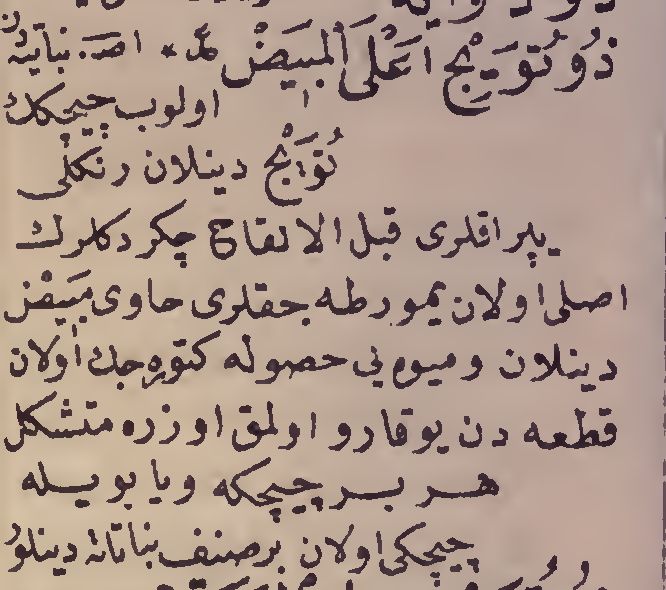 ذُو تُوَيْج أَعْلَى الْمَبِيَضْ * اصـ. نباتيه
اولوب چيچكك
تُوَيْج دينلان رنكلى
يپراقلرى قبل الالقاح چكردكلرك
اصلى اولان يمورطه جقلرى حاوى مَبِيَضْ
دينلان و ميوه يى حصوله كتوره جك اولان
قطعه دن يوقارو اولمق اوزره متشكل
هر بر چيچكه و يا بويله
چيچكى اولان بر صنف نباتاته دينلور